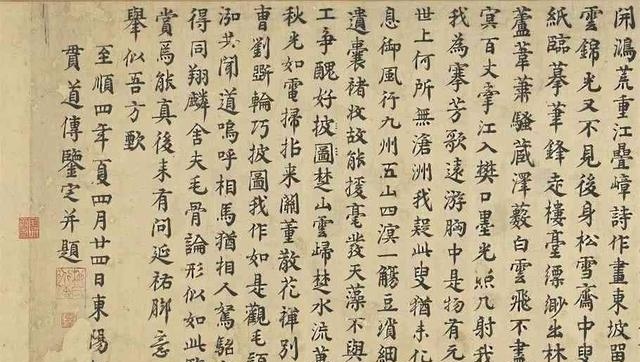 開鴻荒重江疊嶂詩作畫東坡
雲錦光又不見後身松雪齋中叟
紙臨摹筆鋒走樓臺縹緲出林
蘆葦蕭騷蔵澤藪白雲飛不盡
冥百丈牽江入樊口墨光照几射我
我為搴芳歌遠游胸中是物有元
世上何所無滄洲我疑此叟猶未化
息御風行九州五山四溟一觴豆瑣細
遺囊褚牧故能援毫發天藻不與
工争醜好披圖楚山雲歸楚水流
秋光如電掃拈来關董散花禅別
曹劉斵輪巧披圖我作如是觀毛
泓共聞道嗚呼相馬猶相人駑駘
得同翔麟舍夫毛骨論形似如此
賞焉能真後来有問延祐脚意
舉似吾方歅
至順四年夏四月廿四日東陽
貫道傳鑒定并題